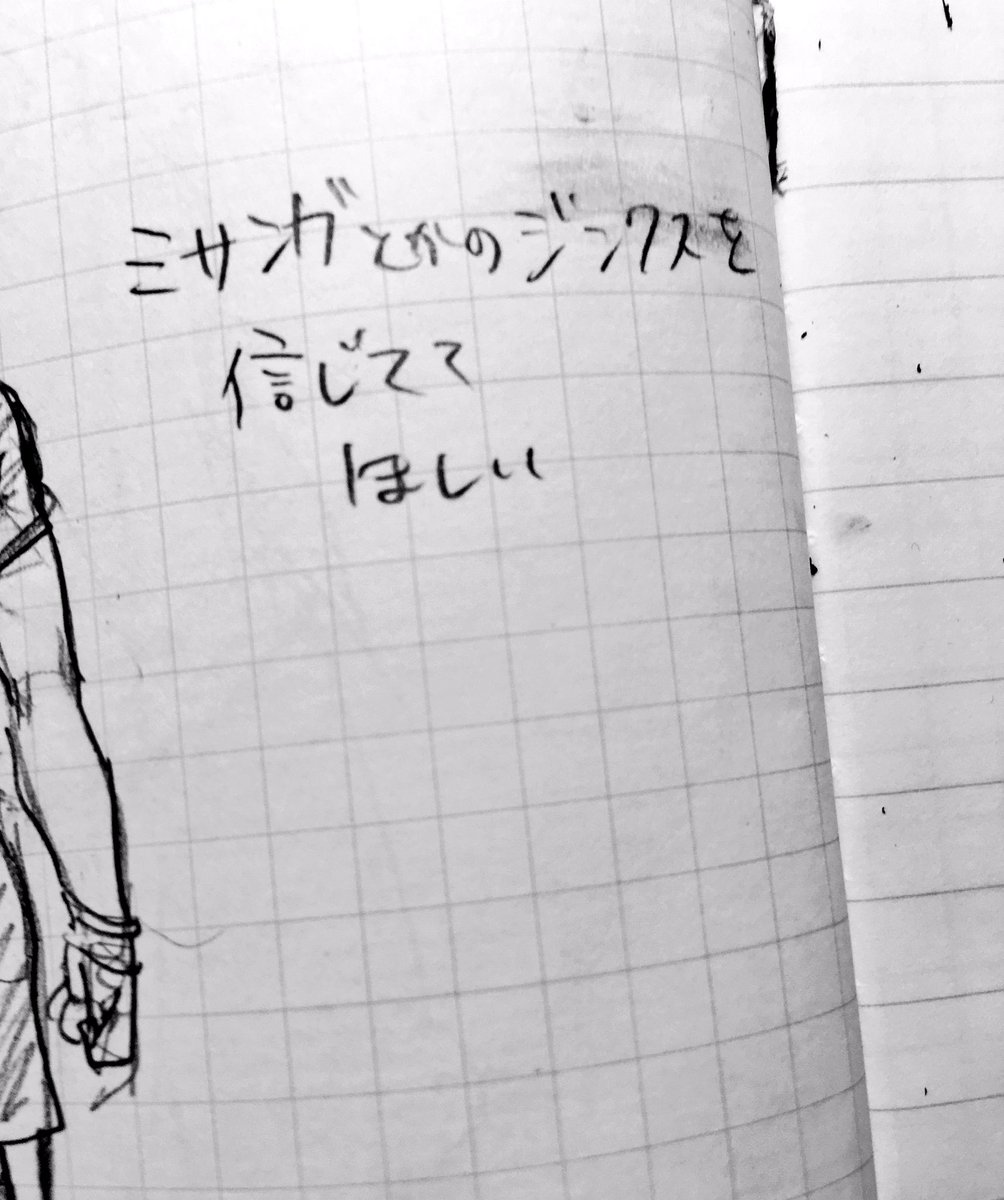 ミサンガとかのジンクスを
信じてて
ほしい